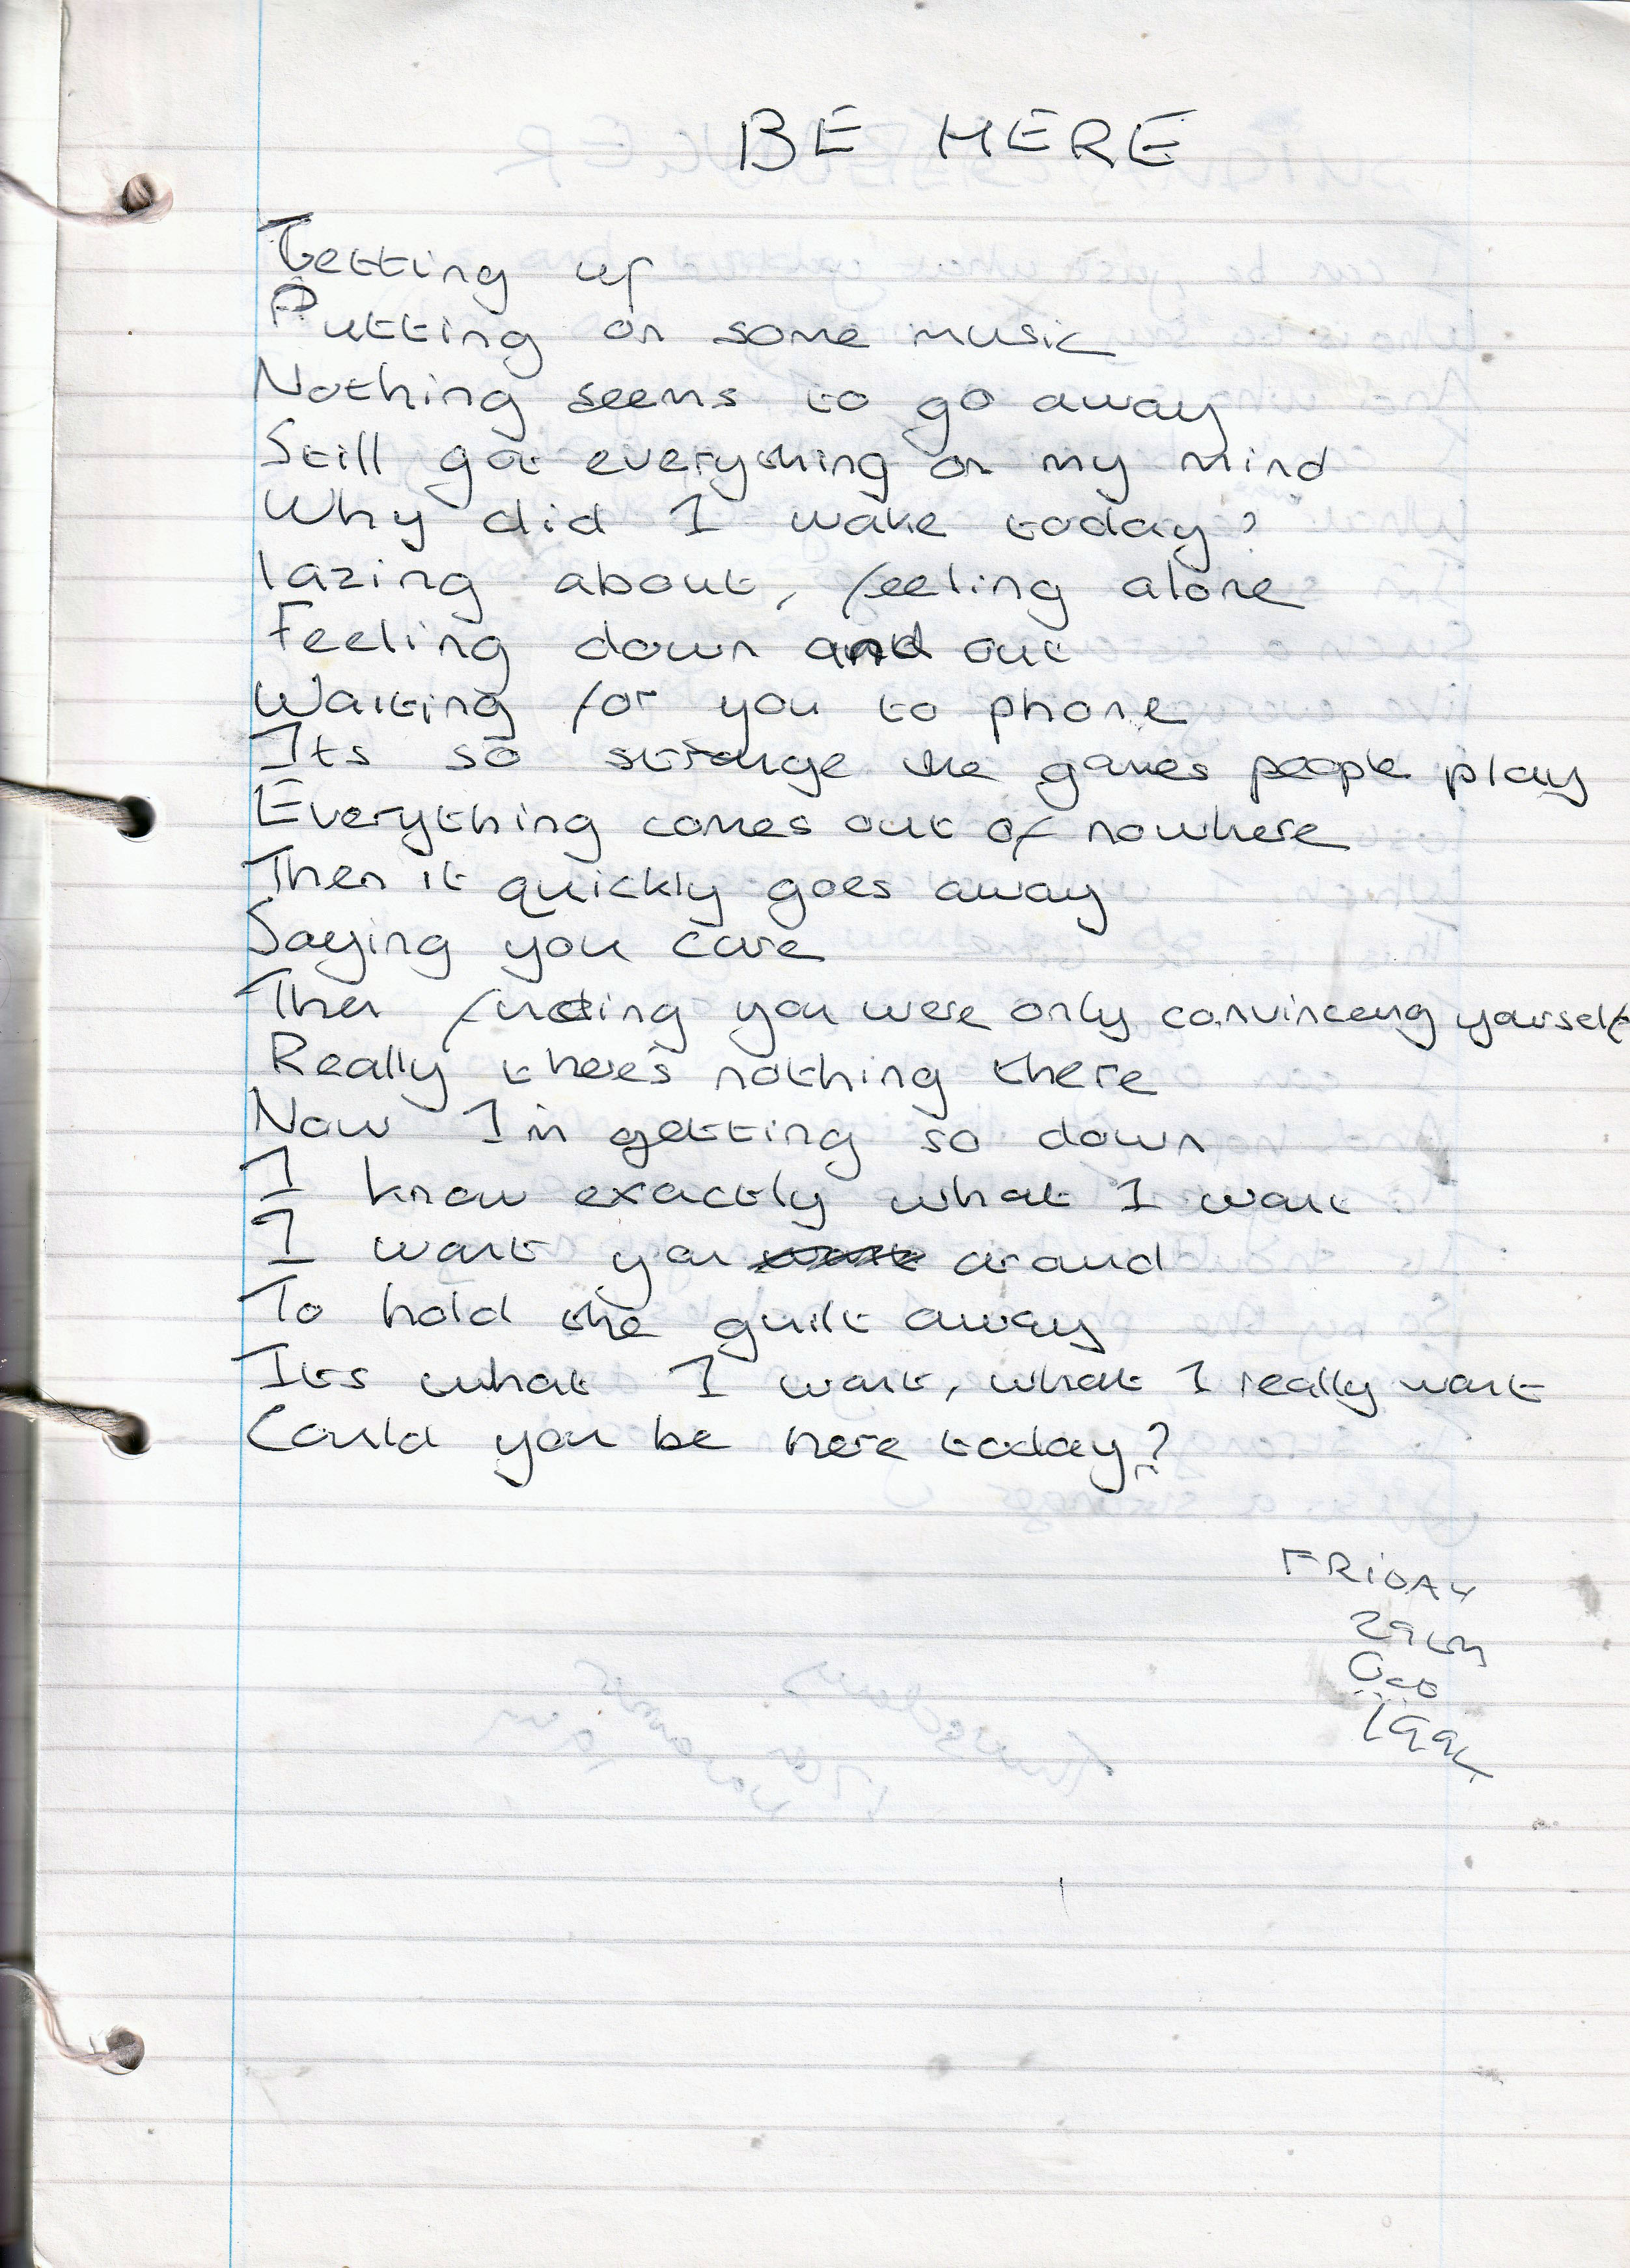 BE HERE
Getting up
Putting on some music
Nothing seems to go away
Still got everything on my mind
Why did I wake today?
lazing about, feeling alone
Feeling down and out
Waiting for you to phone
Its so strange the games people play
Everything comes out of nowhere
Then it quickly goes away
Saying you care
Then finding you were only convinceing yourself
Really theres nothing there
Now I'm getting so down
I know exactly what I want
I want you around
To hold the guilt away
Its what I want, what I really want
Could you be here today?
FRiDAY
29th
Oct